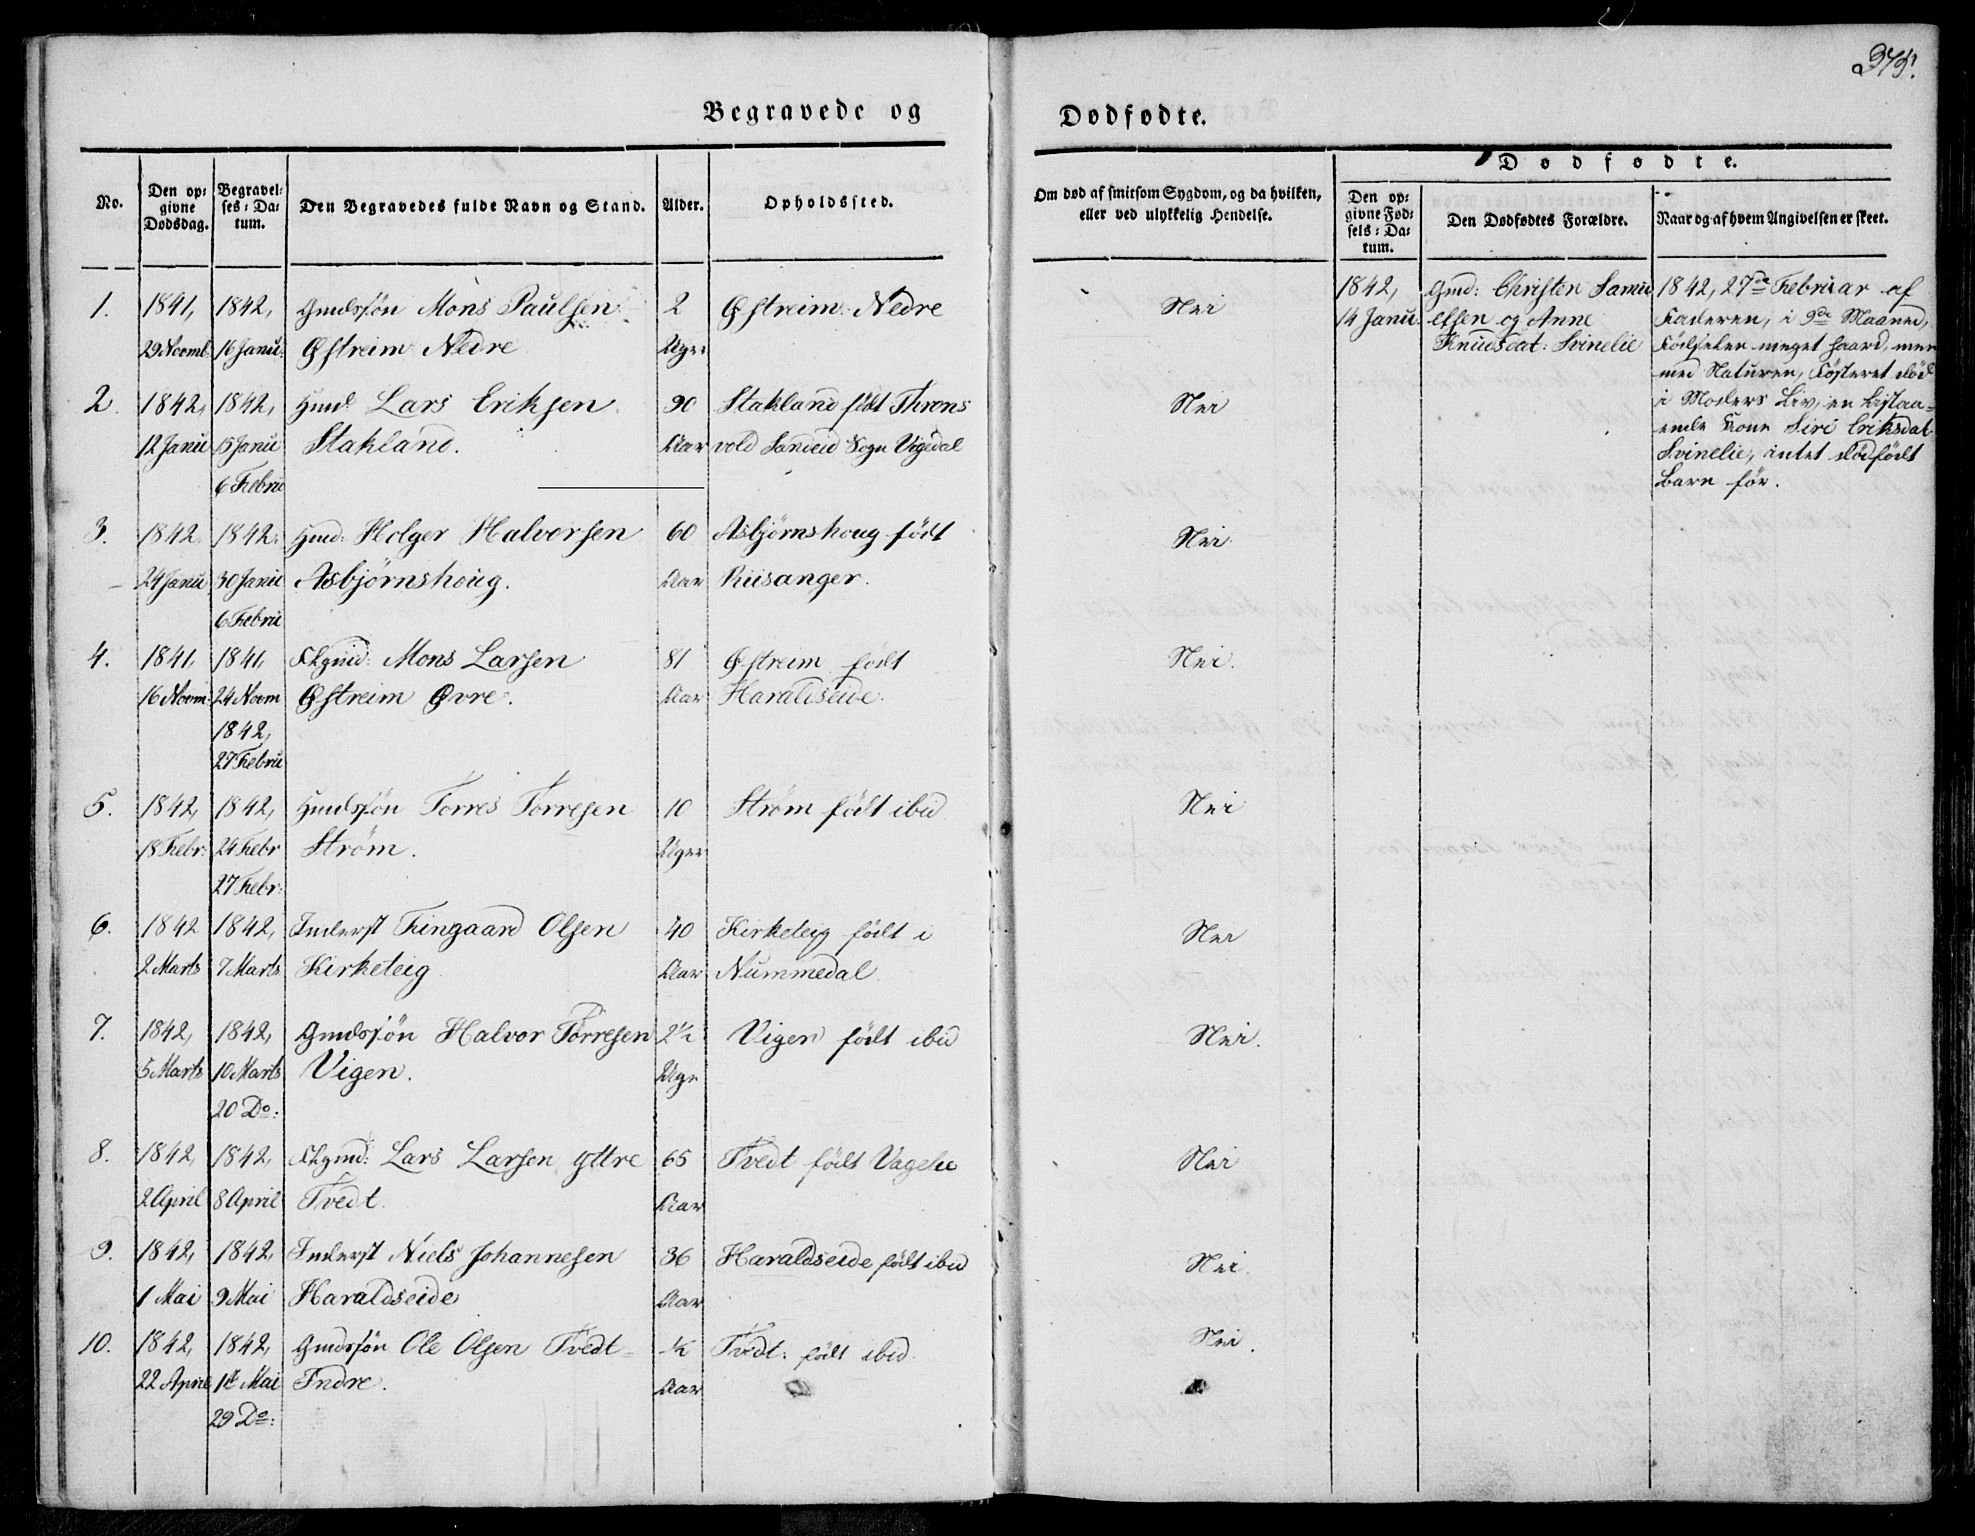 375.
Begravede og
Dødfødte.
No.
Den op=
givne
Dødsdag.
Begravel=
ses=Da=
tum.
Den Begravedes fulde Navn og Stand.
Alder.
Opholdssted.
Om død af smitsom Sygdom, og da hvilken,
eller ved ulykkelig Hendelse.
Dødfødte.
Den op=
givne Fød=
sels=Da=
tum.
Den Dødfødtes Forældre.
Naar og af hvem Angivelsen er skeet.
1. 1841, 1842, Gmdssøn Mons Paulsen 2 Østreim Nedre Nei
29 Novmb 16 Janu. Østreim Nedre Uger
2. 1842, 1842, Hmd. Lars Eriksen 90 Stakland født Throns Nei
12 Janu 15 Janu Stakland. Aar vold Sandeid Sogn Vigedal
6 Febru
3. 1842, 1842, Hmd: Holger Halvorsen 60 Asbjørnshoug født Nei
24 Janu 30 Janu Asbjørnshoug. Aar Riisanger.
6 Febru
4. 1841, 1841, Mons Larsen 81 Østreim født Nei.
16 Novm 24 Novm Østreim Øvre. Aar Haraldseide.
1842,
27 Febru
5. 1842, 1842, Hmdssøn Torres Torresen 10 Strøm født ibid Nei
18 Febr. 24 Febr Strøm. Uger
27 Febr.
6. 1842 1842, Inderst Fingaard Olsen 40 Kirketeig født i Nei
2 Marts 7 Marts Kirketeig Aar Nummedal
7. 1842, 1842, Gmdssøn Halvor Torresen 2½ Vigen født ibid Nei.
5 Marts 10 Marts Vigen. Uge
20 Do:
8. 1842, 1842, Lars Larsen Yttre 65 Tvedt født Vagelie Nei
2 April 8 April Tvedt. Aar
9. 1842, 1842, Inderst Niels Johannesen 36 Haraldseide født ibid Nei.
1 Mai 9 Mai Haraldseide Aar
10. 1842, 1842, Gmdssøn Ole Olsen Tvedt ½ Tvedt. født ibid. Nei.
22 April 1te Mai Indre. Aar
29 Do:
1842,
14 Janu.
Gmd: Christen Samu
elsen og Anne
Knudsdat: Svinelie
1842, 27de Februar af
Faderen, i 9de Maaned,
Fødselen meget haard, men
med Naturen, Fosteret død
i Moders Liv, en bistaa=
ende Kone Siri Eriksdat
Svinelie, intet dødfødt
Barn før.